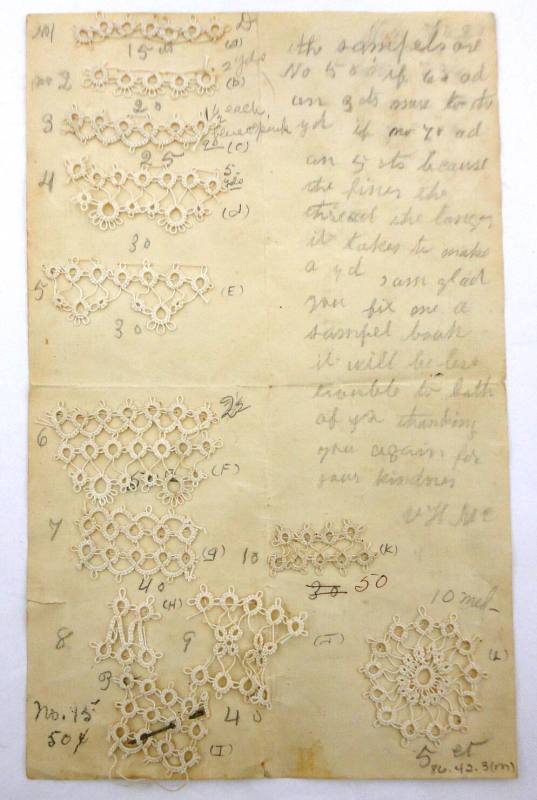 No 1
15 ct
(a)
No 2
2 yds
(b)
20
3
1½ each
(C)
25
4
5 yds
(d)
30
5
(E)
30
6
2½
(F)
50
7
(g)
40
10
(K)
30 50
8
(H)
9
40
No. 15
50¢
(I)
10 med
(L)
5 ct
86.42.3(m)
the sampels are
No 50 if 60 ad
an 3 cts more to the
yd if no 70 ad
an 5 cts because
the finer the
thread the longer
it takes to make
a yd I am glad
you fix me a
sampel book
it will be less
trouble to both
of us thanking
you again for
your kindness